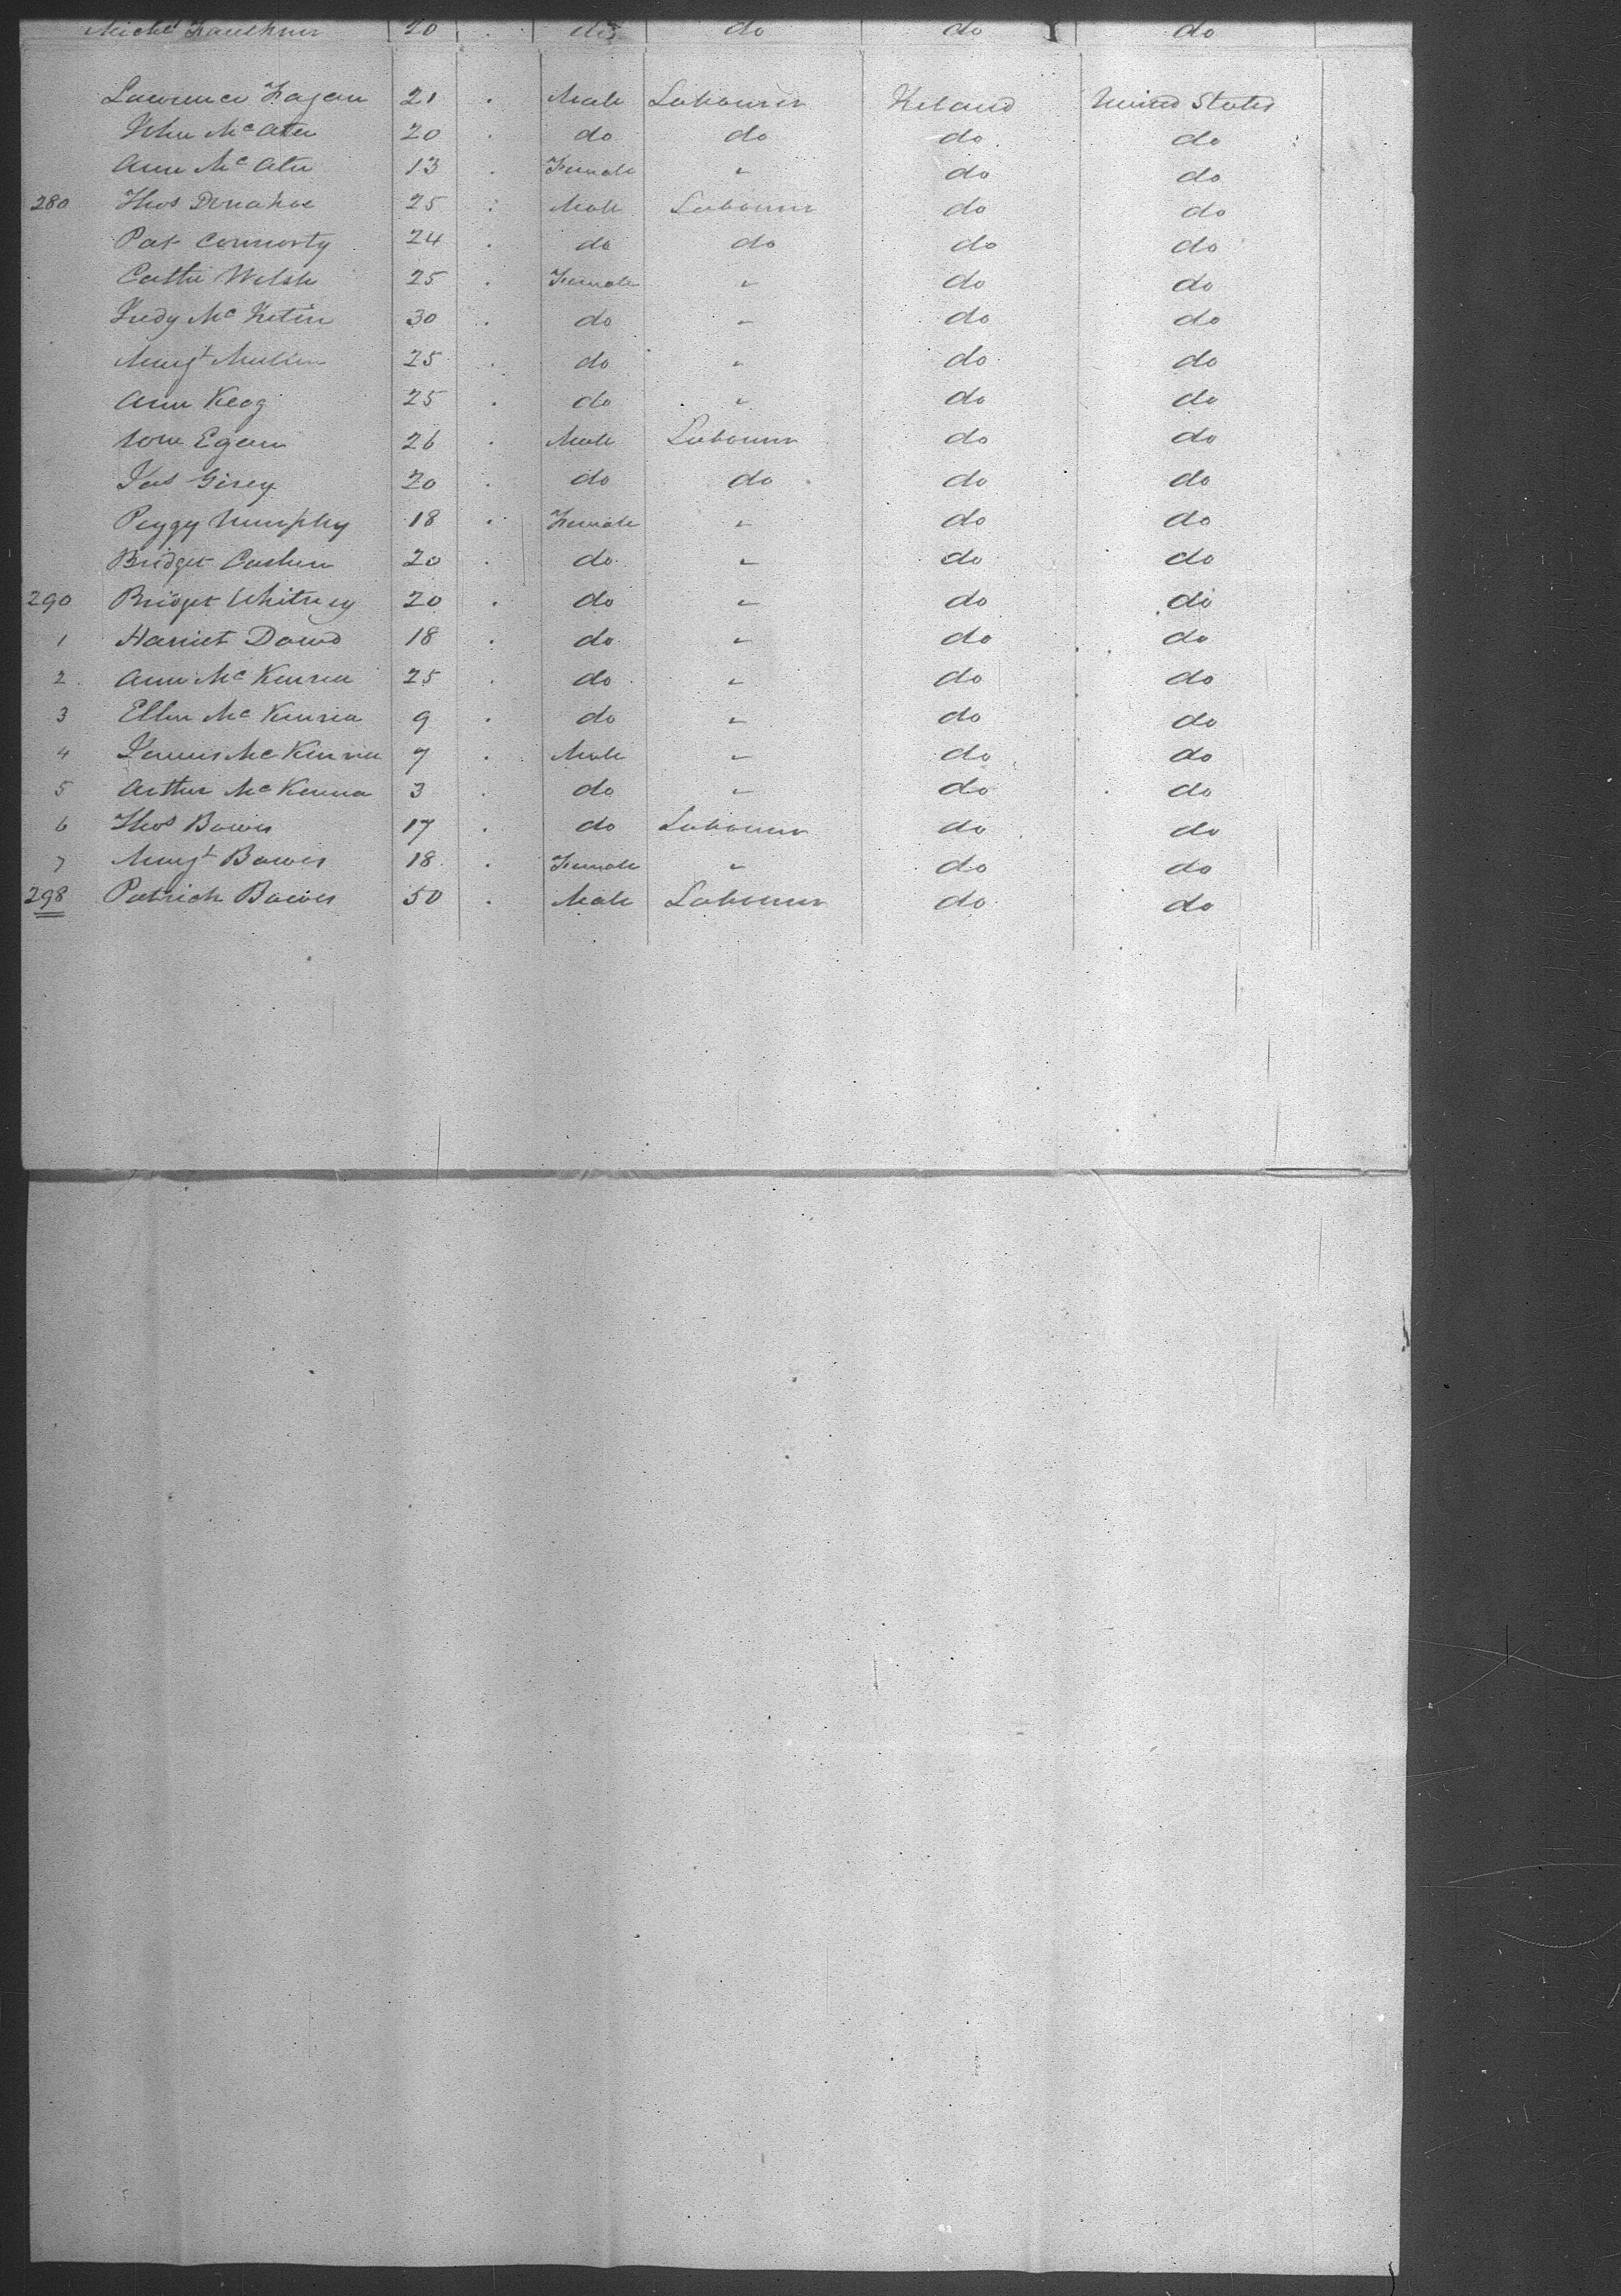 Michl Faulkner 20 . do do do do
Lawrence Fagan 21 . Male Labourer Ireland United States
John McAtee 20 . do do do do
Ann McAtee 13 . Female " do do
280 Thos Donahoe 25 . Male Labourer do do
Pat Connorty 24 . do do do do
Cathe Welsh 25 . Female " do do
30 . do " do do
Margt 25 . do " do do
Ann Keog 25 . do " do do
Wm Egan 26 . Male Labourer do do
Jas 20 . do do do do
Peggy Murphy 18 . Female " do do
Bridget 20 . do " do do
290 Bridget Whitney 20 . do " do do
1 Harriet Dowd 18 . do " do do
2 Ann McKenna 25 . do " do do
3 Ellen McKenna 9 . do " do do
4 James McKenna 7 . Male " do do
5 Arthur McKenna 3 . do " do do
6 Thos Bowes 17 . do Labourer do do
7 Margt Bowes 18 . Female " do do
298 Patrick Bowes 50 . Male Labourer do do